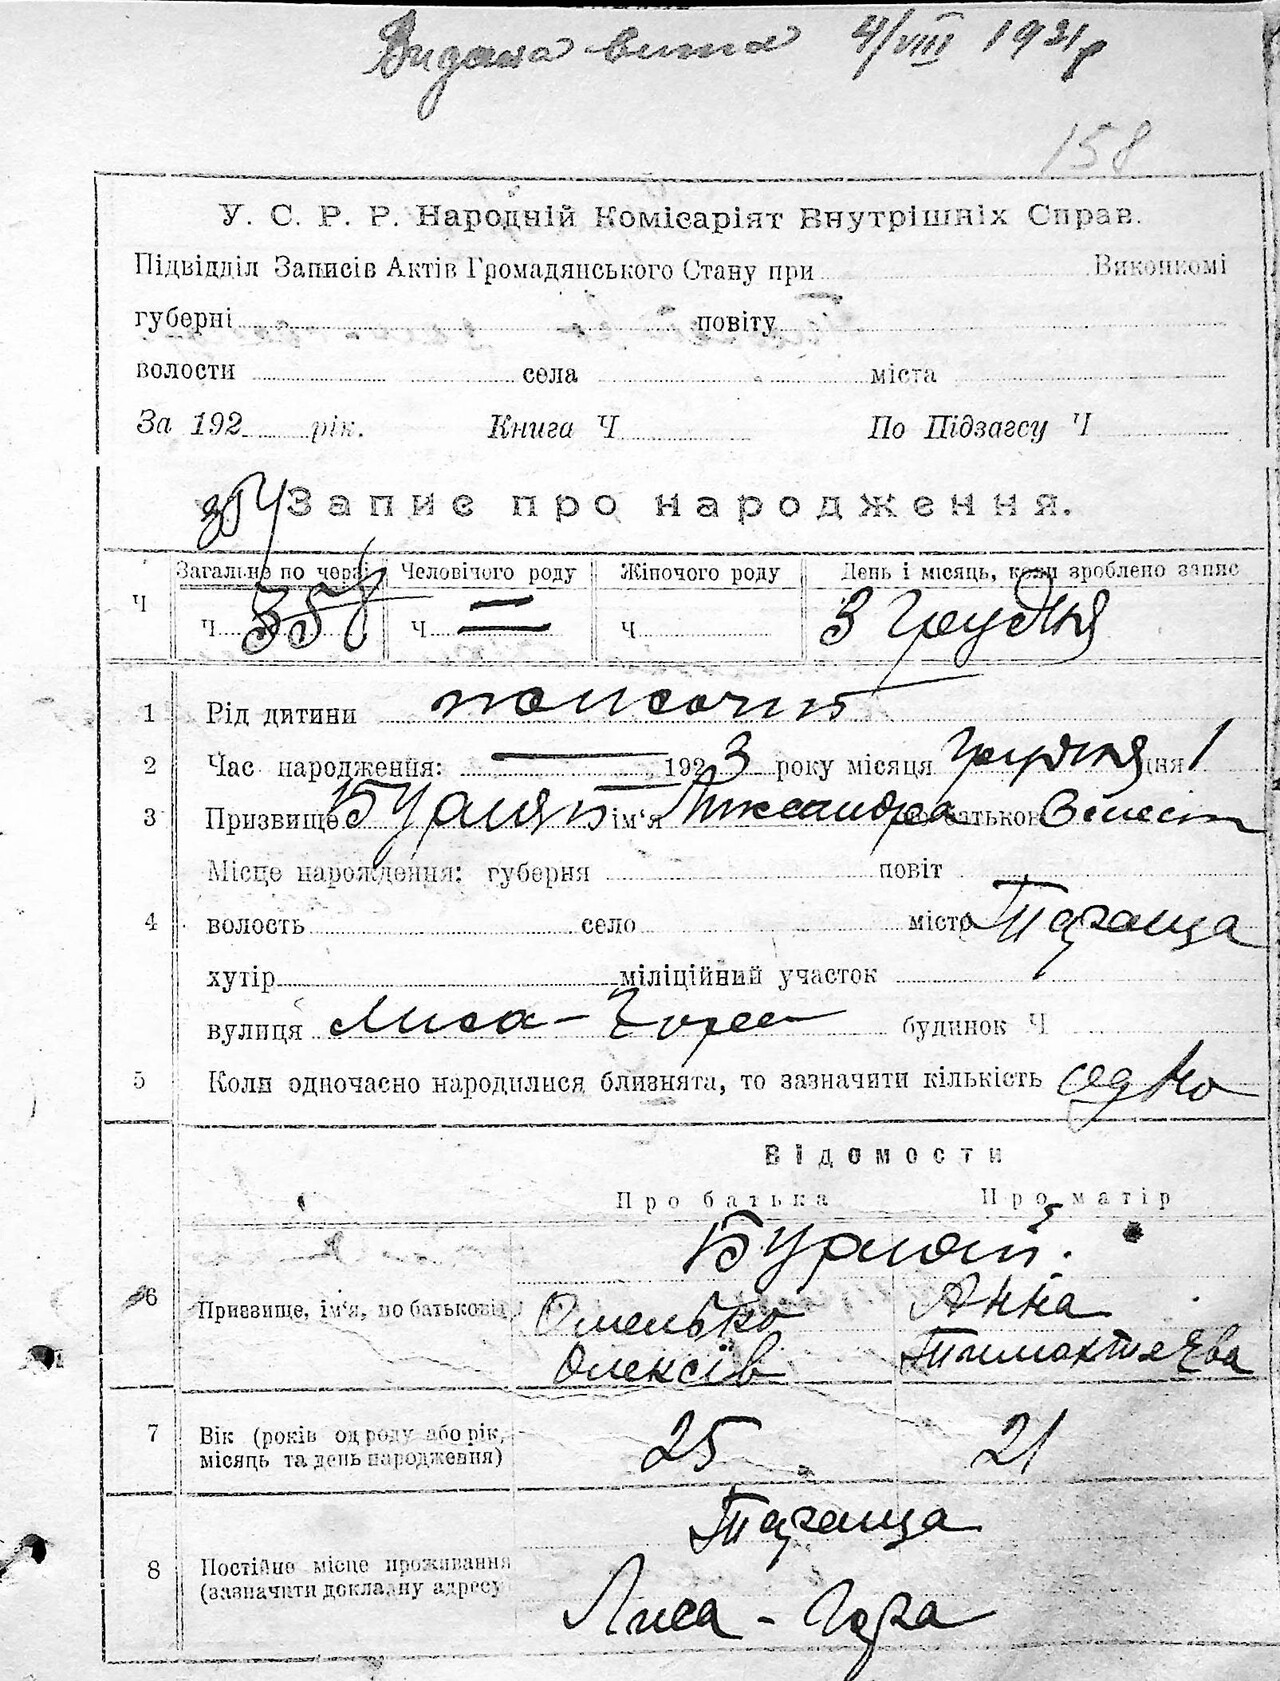 Видана вития 4/VIII 1931 р
158
У. С. Р. Р. Народній Комісаріят Внутрішніх Справ.
Підвідділ Записів Актів Громадянського Стану при Виконкомі
губерні повіту
волости села міста
За 192 рік. Книга Ч По Підзагсу Ч
Запис про народження.
Загальне по черзі Человічого роду Жіночого роду День і місяць, коли зроблено запис
Ч Ч 358 Ч Ч 3 Грудня
1 Рід дитини
2 Час народження: 1923 року місяця Грудня дня 1
3 Призвище ім'я по батькові
Місце нарождення: губерня повіт
4 волость село місто Таганча
хутір міліційний участок
вулиця Лиса-Гора будинок Ч
5 Коли одночасно народилися близнята, то зазначити кількість одно
Відомости
Про батька Про матір
6 Призвище, ім'я, по батькові Омелько Анна
Олексів
7 Вік (років од роду або рік, 25 21
місяць та день народження)
Таганча
8 Постійне місце проживання
(зазначити докладну адресу)
Лиса-Гора